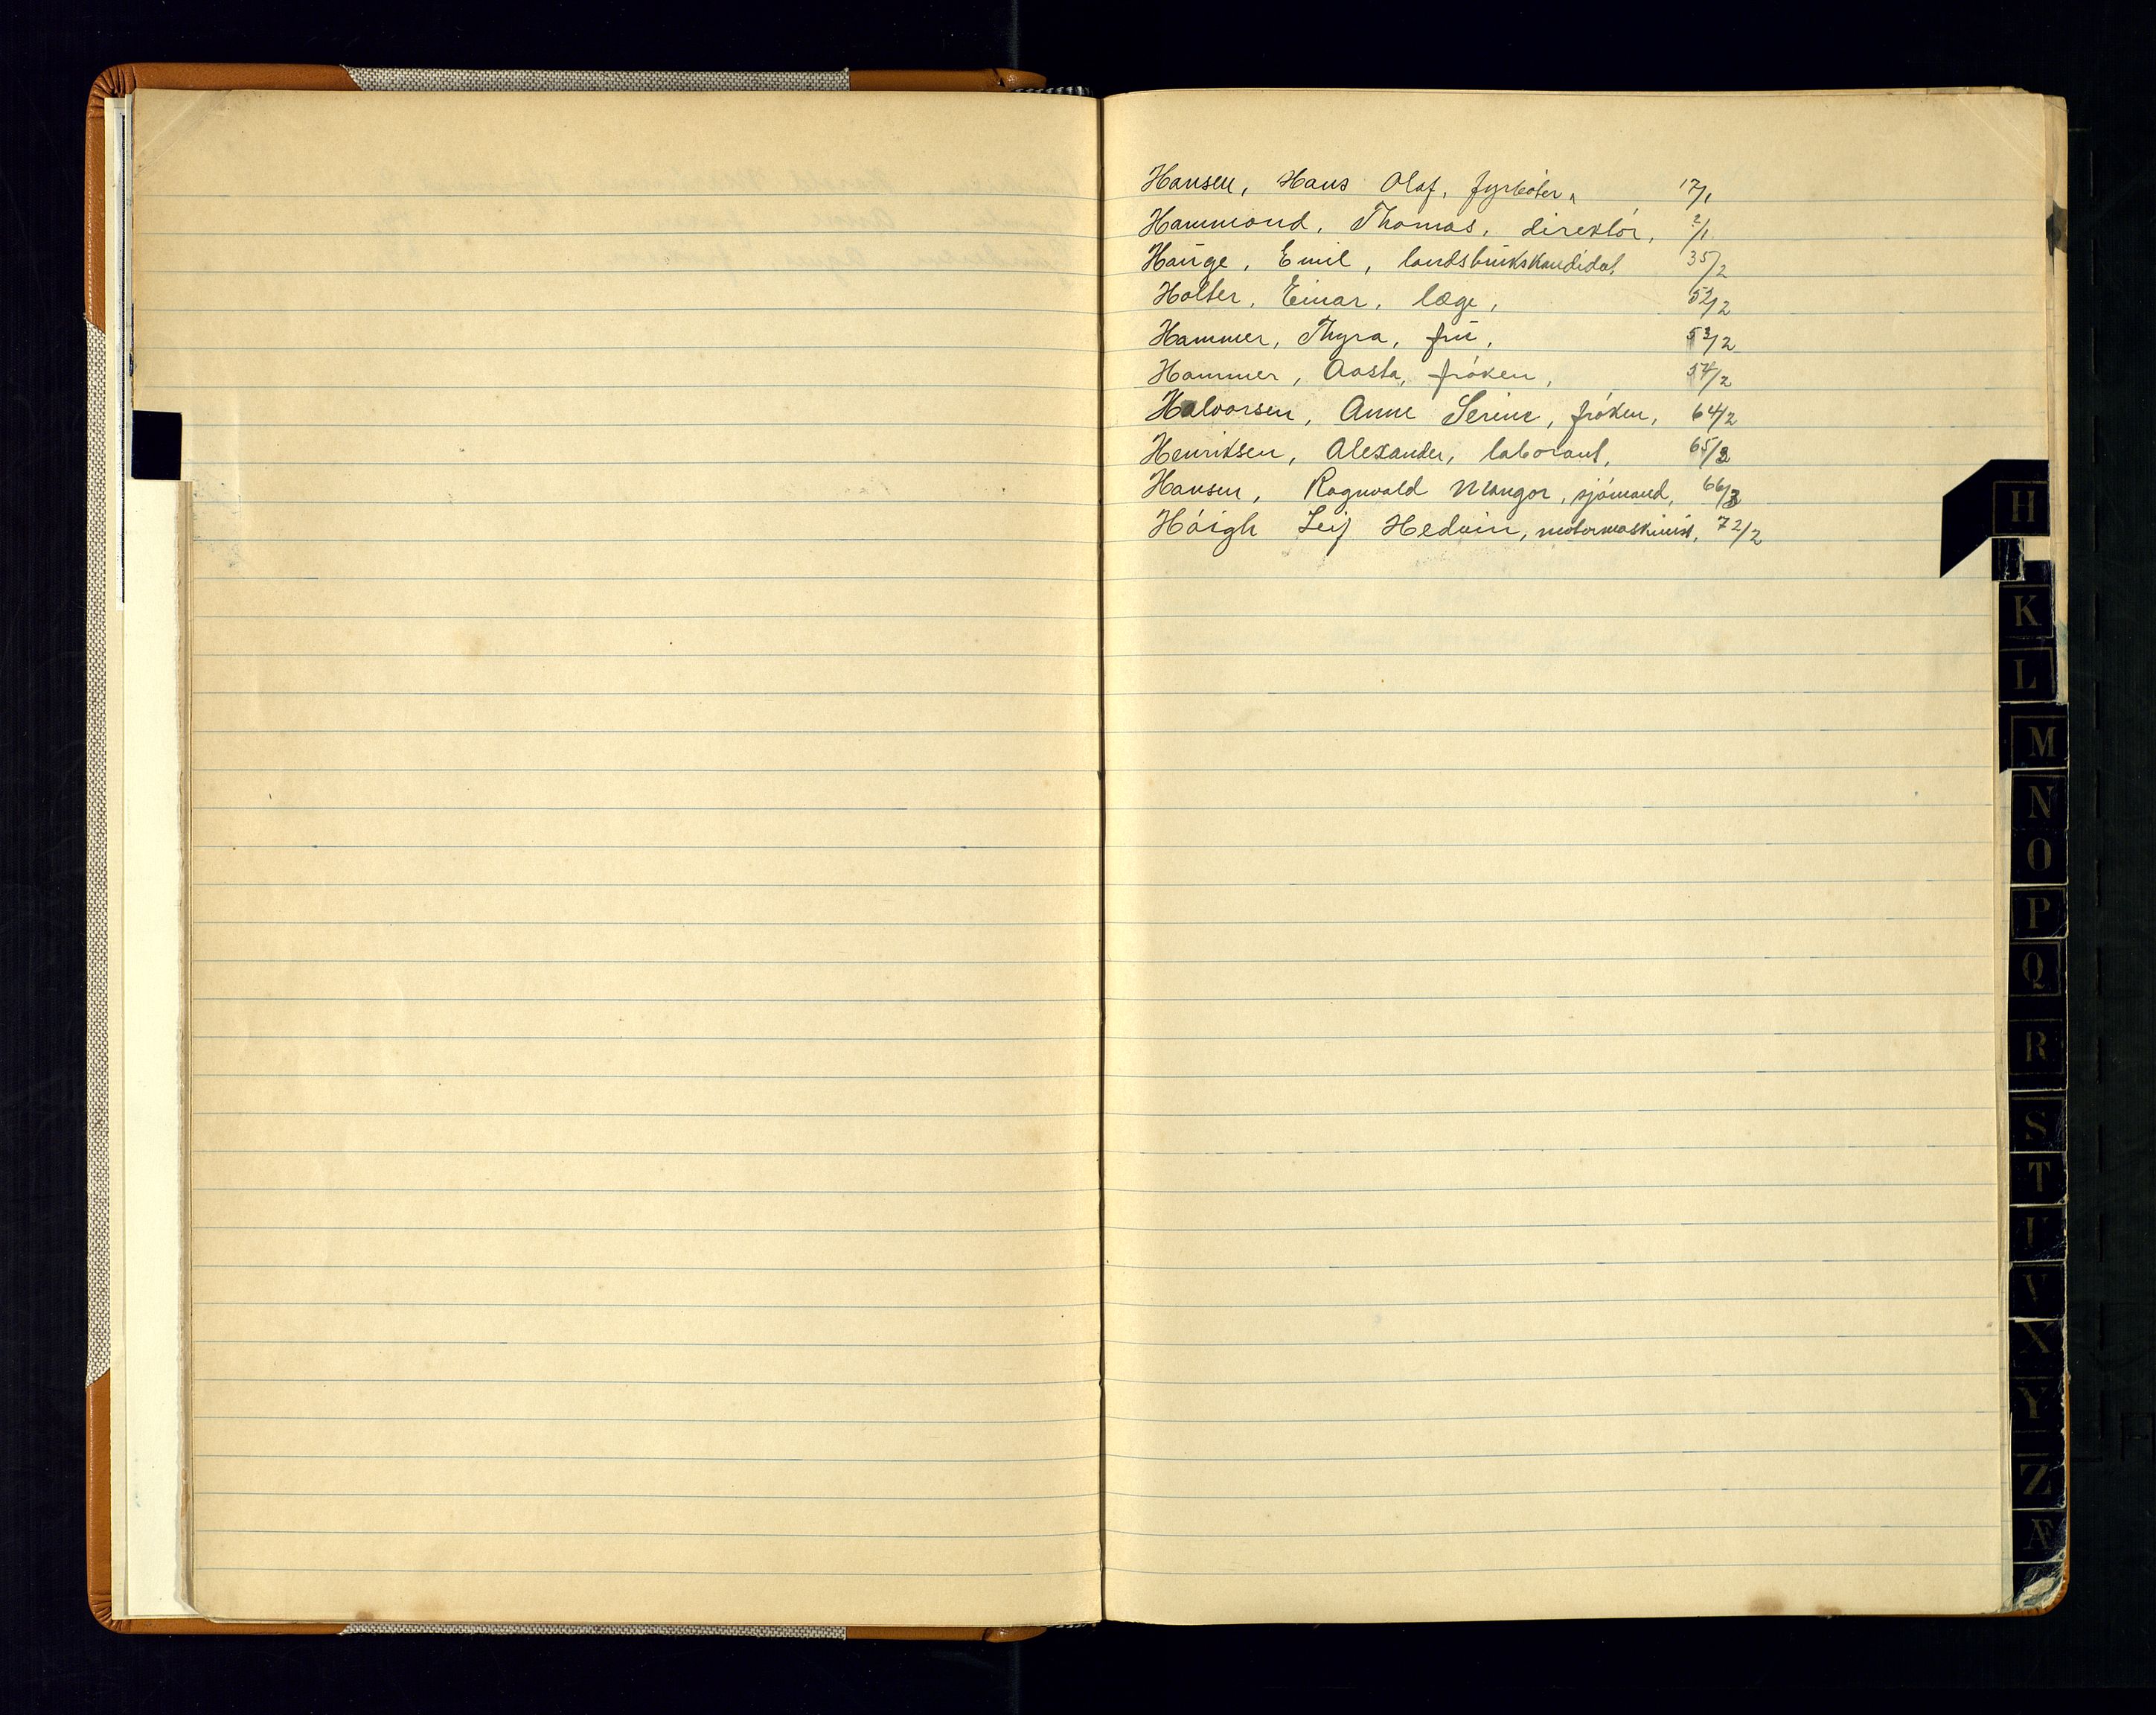 Hansen, Hans Olaf, fyrböter, 17/1
Hammond, Thomas, direktör, 2/1
Hauge, Emil, landsbrukskandidat, 35/2
Holter, Einar, læge, 52/2
Hammer, Thyra, frü, 53/2
Hammer, Aasta, fröken, 54/2
Halvorsen, Anne Serine, fröken, 64/2
Henriksen, Alexander, laborant, 65/3
Hansen, Ragnvald Mangor, sjömand, 66/3
Höigh Leif Hedvin, motormaskinist, 72/2
H
K
L
M
N
O
P
Q
R
S
T
U
V
X
Y
Z
Æ